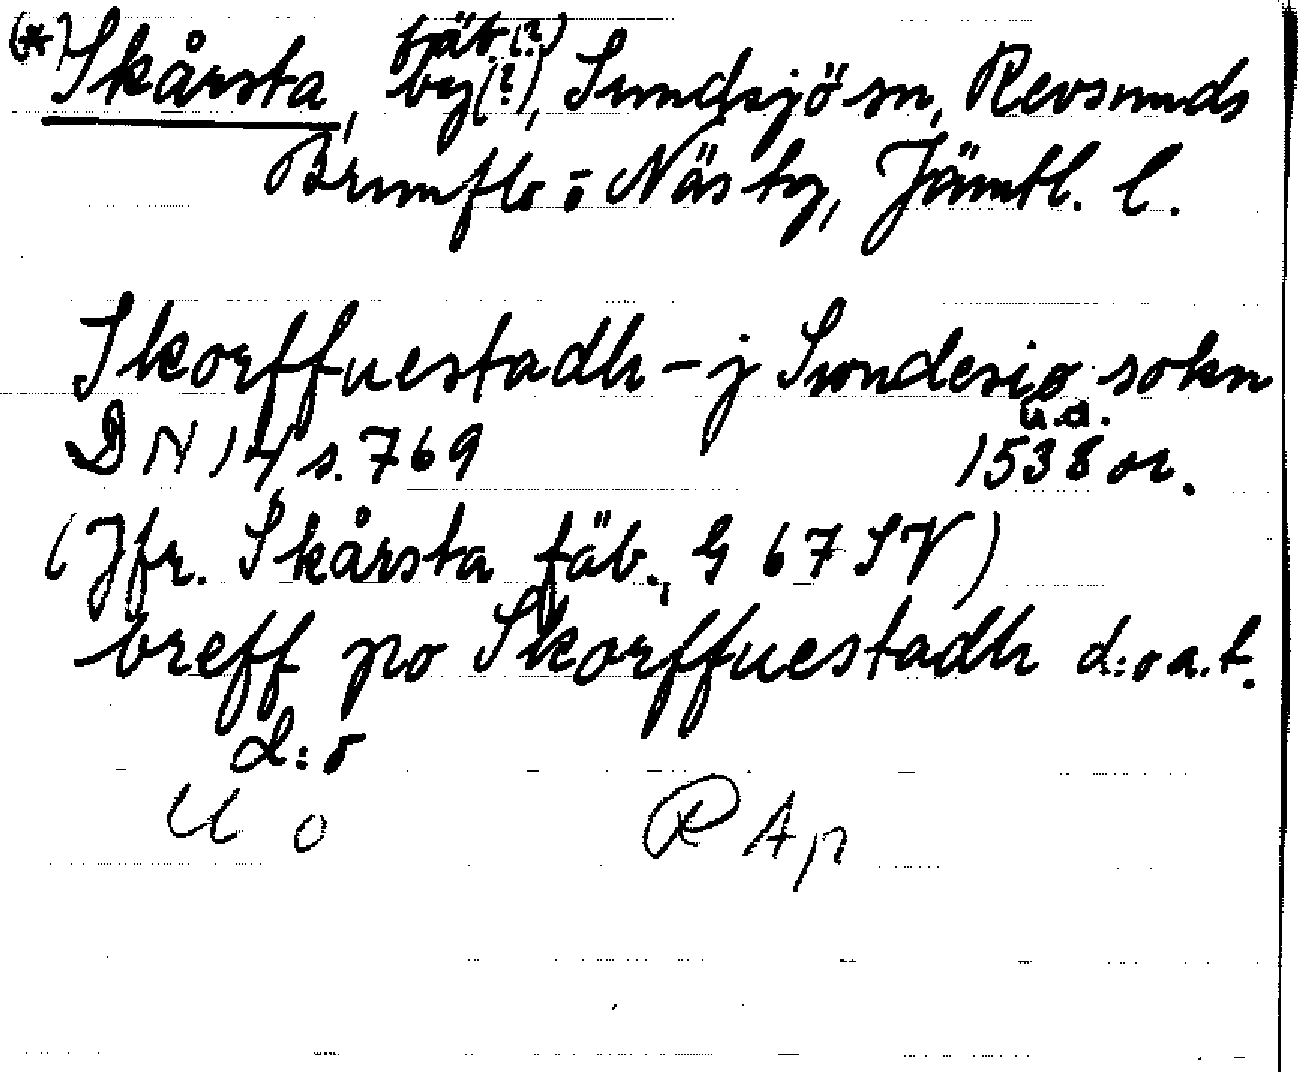 (*) Skårsta, fäb.(?)
by(?), Sundsjö sn, Revsunds
Brunflo o Näs tg, Jämtl. l.
Skorffuestadh - j Swndesiø sokn
u.a.
DN 14 s. 769 1538 or.
(Jfr. Skårsta fäb., G 67 SV)
breff po Skorffuestadh d:o a.t.
d:o
U o RAp